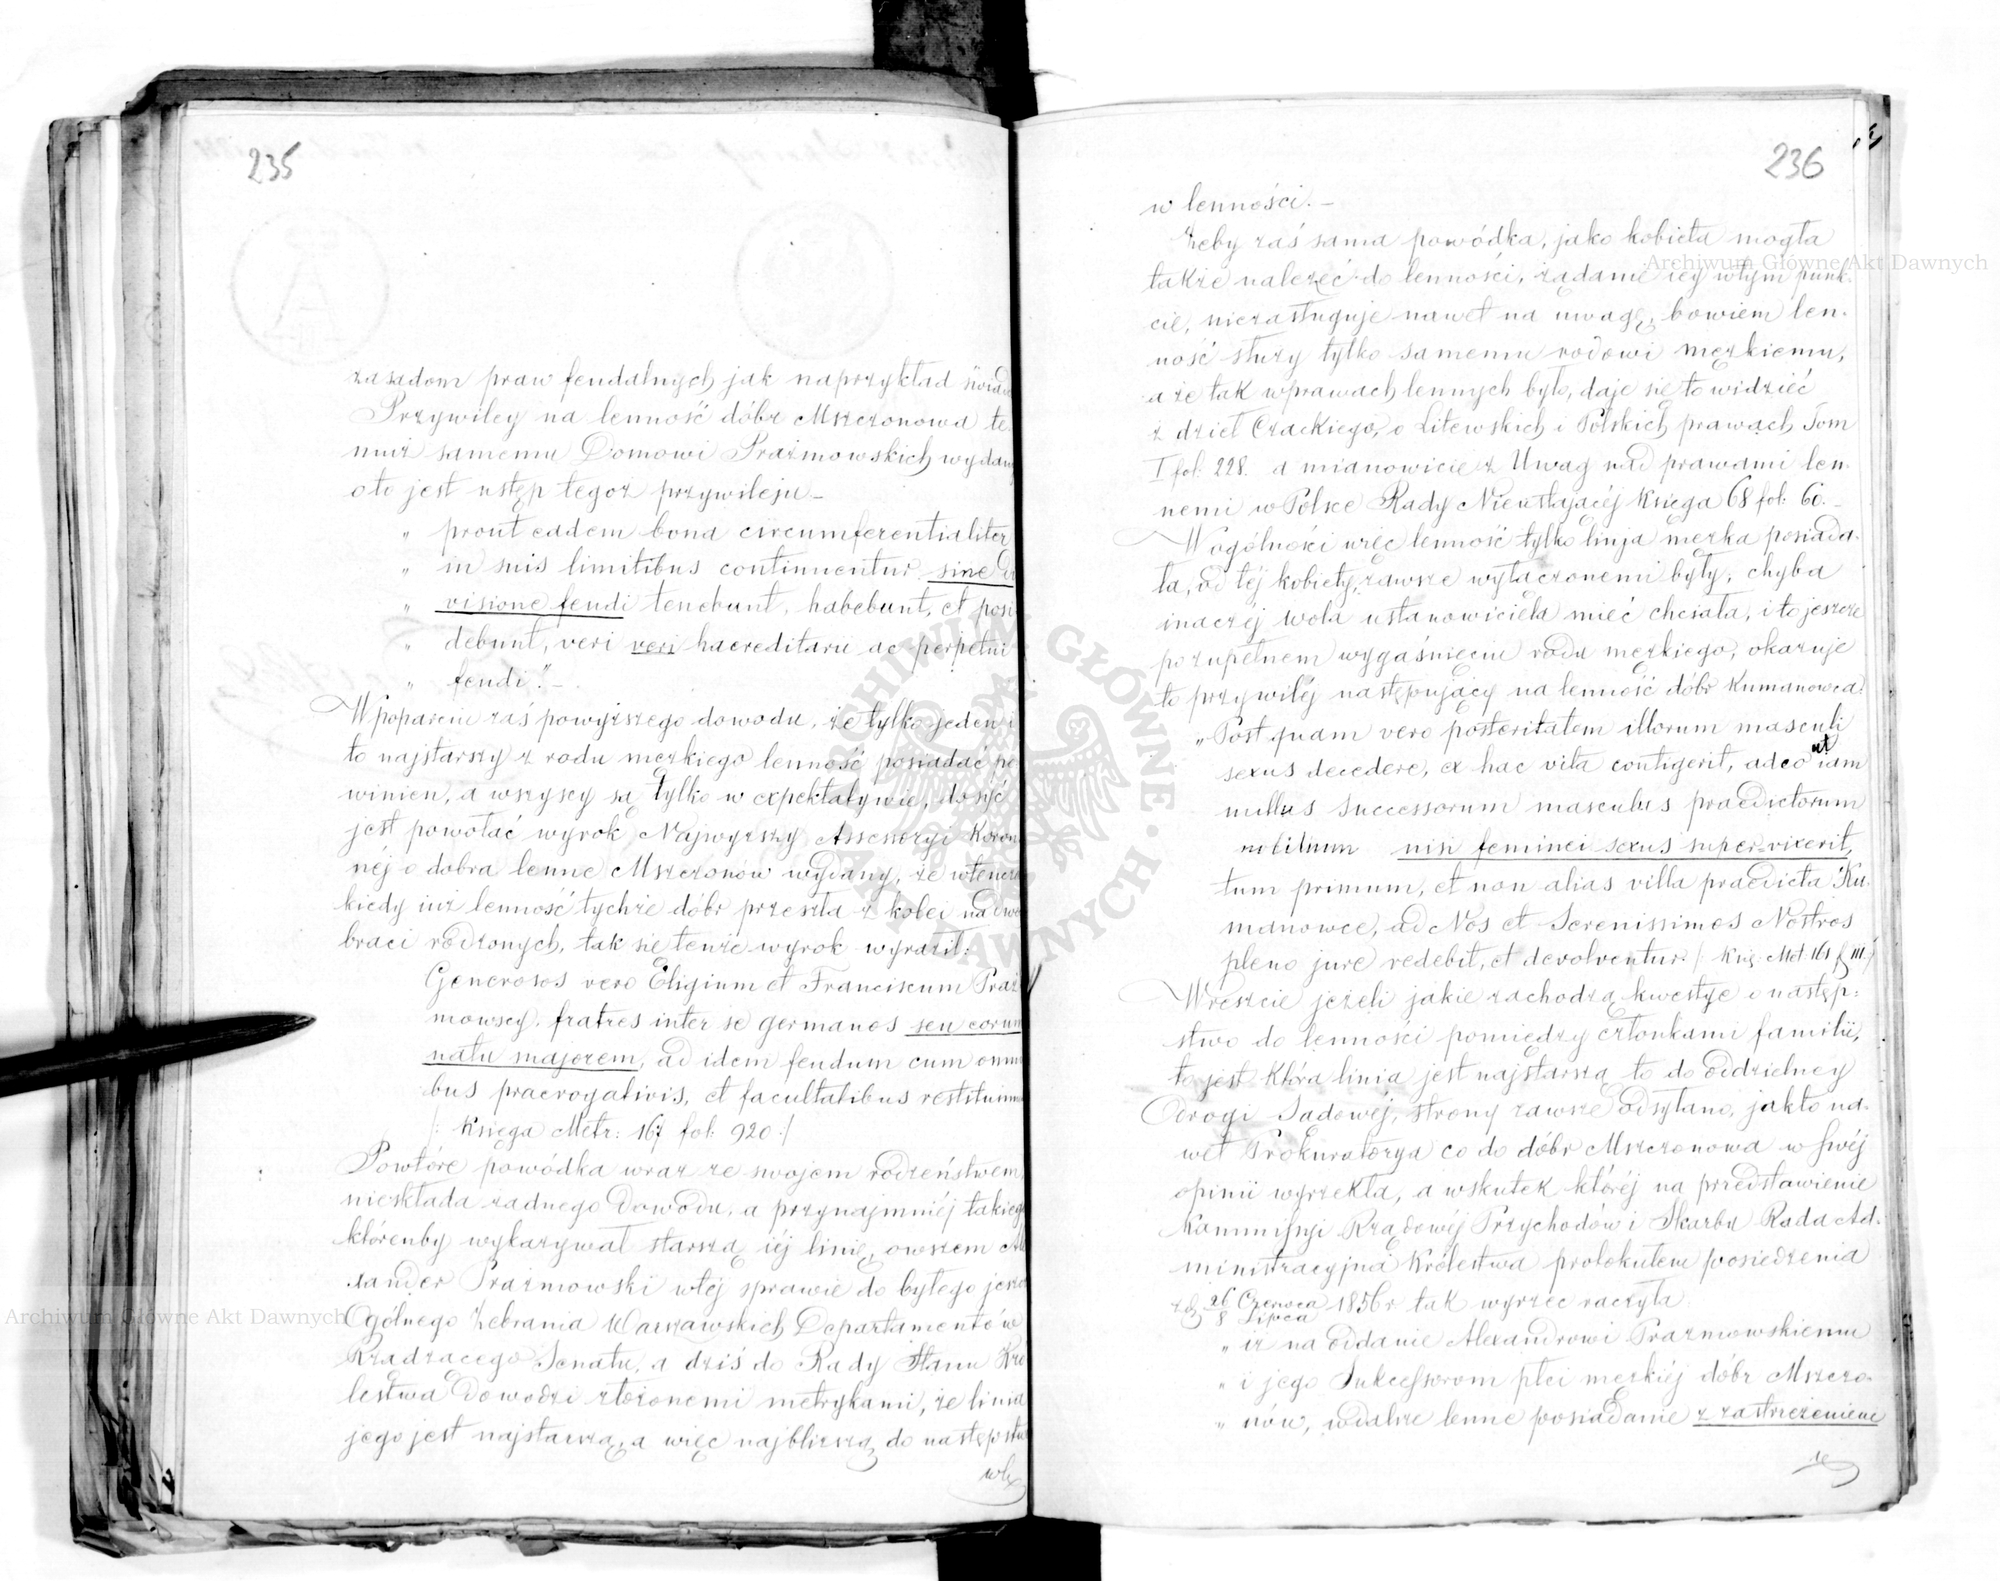 235
zasadom praw feudalnych, jak naprzykład świad
Przywiley na lenność dóbr Mszczonowa te
muż samemu Domowi Prażmowskich wydany
oto jest ustęp tegoż przywileju –
„ prout eadem bona circumferentialiter
„ in suis limitibus continuentur sine di
„ visione feudi tenebunt, habebunt, et posi
„ debunt, veri veri haereditarii ac perpetui
„ feudi". –
W poparciu zaś powyższego dowodu, że tylko jeden i
to najstarszy z rodu męzkiego lenność posiadać po
winien, a wszyscy są tylko w expektatywie, dosyć
jest powołać wyrok Najwyższy Assessoryi Koron
néj o dobra lenne Mszczonów wydany, że wtencza
kiedy już lenność tychże dóbr przeszła z kolei na dwo
braci rodzonych, tak się tenże wyrok wyraził:
Generosos vero Eligium et Franciscum Praż
mowscy, fratres inter se germanos seu eorum
natu majorem, ad idem feudum cum omni
bus praerogativis, et facultatibus restituim
/: Księga Metr: 167 fol: 920 :/
Powtóre powódka wraz ze swojem rodzeństwem,
nieskłada żadnego dowodu, a przynajmniéj takiego
którenby wykazywał starszą iéj linię, owszem Ale
xander Prażmowski w téj sprawie do byłego jeszcz
Ogólnego Zebrania Warszawskich Departamentów
Rządzącego Senatu, a dziś do Rady Stanu Kró
lestwa dowodzi złożonemi metrykami, że linia
jego jest najstarszą, a więc najbliższą do następstw
236
w lenności. –
Żeby zaś sama powódka, jako kobieta mogła
także należeć do lenności, żądanie iey w tym punk-
cie, niezasługuje nawet na uwagę, bowiem len-
ność służy tylko samemu rodowi męzkiemu,
a że tak w prawach lennych było, daje się to widzieć
z dzieł Czackiego, o Litewskich i Polskich prawach Tom
I fol: 228. a mianowicie z Uwag nad prawami len-
nemi w Polsce Rady Nieustającéj Księga 68 fol: 60. –
W ogólności więc lenność tylko linja męzka posiada-
ła, od téj kobiety, zawsze wyłączonemi były, chyba
inaczéj wola ustanowiciela mieć chciała, i to jeszcze
po zupełnem wygaśnięciu rodu męzkiego, okazuje
to przywiléj następujący na lenność dóbr Kumanowca:
„Post quam vero posteritatem illorum masculi
sexus decedere, ex hac vita contigerit, adeo ut iam
nullus successorum masculus praedictorum
nobilium nisi feminei sexus super-vixerit,
tum primum, et non alias villa praedicta Ku-
manowce, ad Nos et Serenissimos Nostros
pleno jure redebit, et devolventur. /: Księ: Met: 161 f. III :/
Wreszcie jeżeli jakie zachodzą kwestye o następ-
stwo do lenności pomiędzy członkami familii,
to jest która linia jest najstarszą, to do oddzielney
drogi Sądowéj, strony zawsze odsyłano, jak to na-
wet Prokuratorya co do dóbr Mszczonowa w swéj
opinii wyrzekła, a wskutek któréj na przedstawienie
Kommissyi Rządowéj Przychodów i Skarbu Rada Ad-
ministracyjna Królestwa protokułem posiedzenia
z d. 26 Czerwca / 8 Lipca 1856 r tak wyrzec raczyła
„ iż na oddanie Alexandrowi Prażmowskiemu
„ i jego Sukcessorom płci męzkiéj dóbr Mszczo-
„ nów, w dalsze lenne posiadanie z zastrzeżeniem
Archiwum Główne Akt Dawnych
Archiwum Główne Akt Dawnych
ARCHIWUM GŁÓWNE · AKT DAWNYCH ·